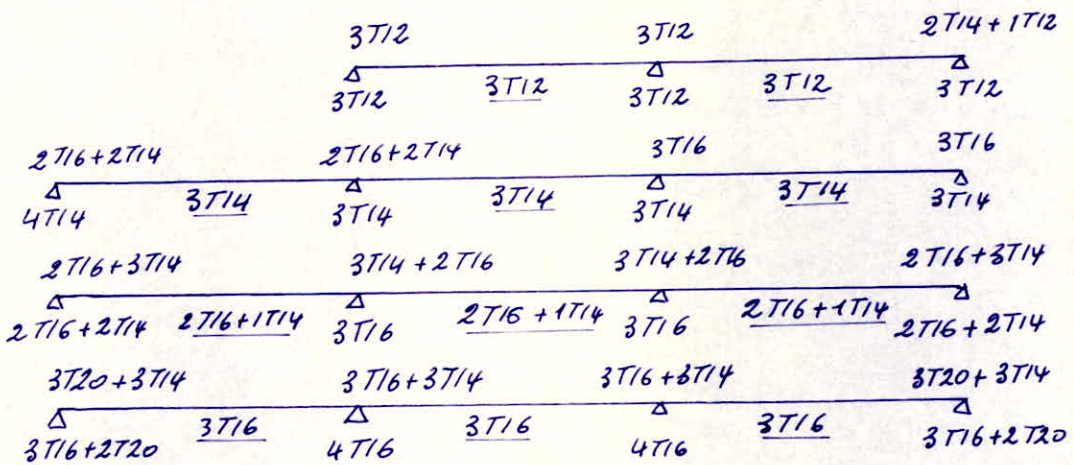 3T12 3T12 2T14 + 1T12
3T12 3T12 3T12 3T12 3T12
2T16+2T14 2T16+2T14 3T16 3T16
4T14 3T14 3T14 3T14 3T14 3T14 3T14
2T16+3T14 3T14 + 2T16 3T14 + 2T16 2T16+3T14
2T16+2T14 2T16+1T14 3T16 2T16 + 1T14 3T16 2T16+1T14 2T16+2T14
3T20+3T14 3T16+3T14 3T16+3T14 3T20+3T14
3T16+2T20 3T16 4T16 3T16 4T16 3T16 3T16+2T20